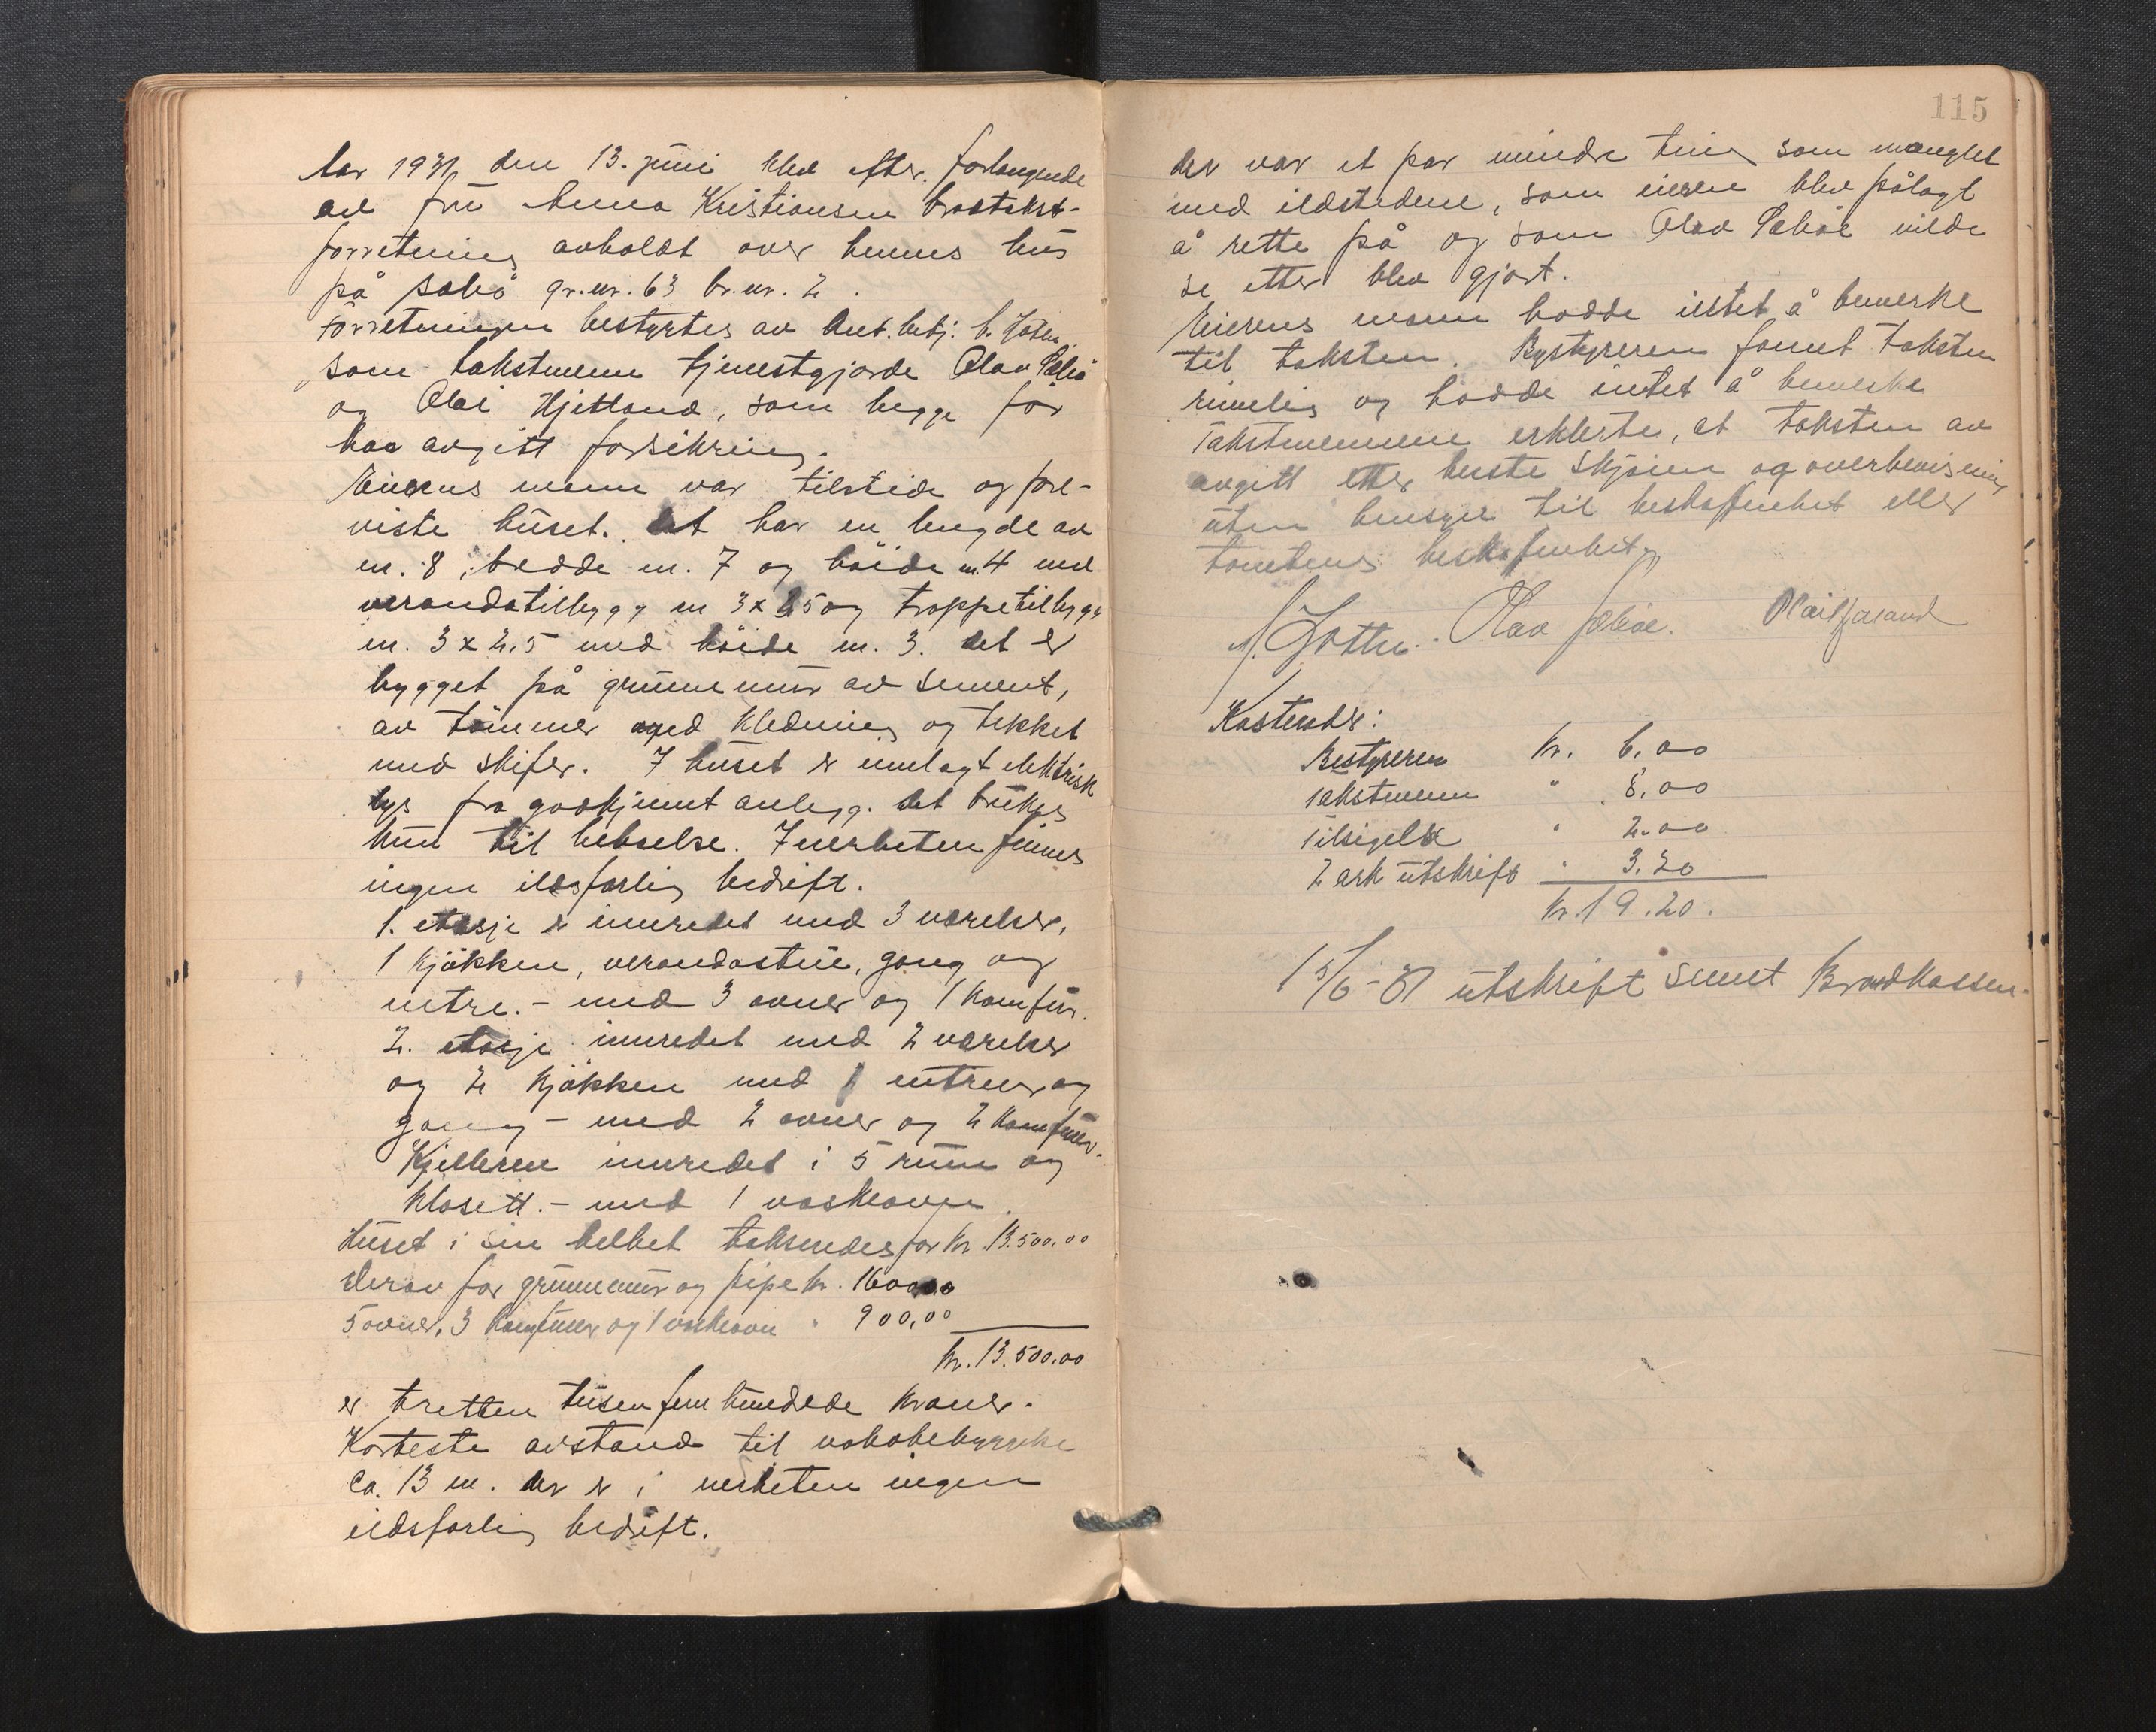 Aar 1931 den 13. juni blev efter forlangende
av fru Anna Kristiansen brandtakst-
forretning avholdt over hennes hus
på Sæbø gr.nr. 63 br.nr. 2.
Forretningen bestyrtes av
som takstmenn tjenestgjorde Olav Sæbø
og Olai Hjetland, som begge før
har avgitt forsikring.
Eierens mann var tilstede og fore-
viste huset. Det har en lengde av
m. 8, bredde m. 7 og høide m. 4 med
verandatilbygg m 3 x 2,5 og trappetilbygg
m. 3 x 2,5 med høide m. 3. Det er
bygget på grunnmur av sement,
av tømmer med kledning og tekket
med skifer. I huset er innlagt elektrisk
lys fra godkjennt anlegg. Det brukes
kun til bebøelse. I nerheten finnes
ingen ildsfarlig bedrift.
1. etasje er innredet med 3 værelser,
1 kjøkken, verandastue, gang og
entre. - med 3 ovner og 1 komfur.
2. etasje innredet med 2 værelser
og 2 kjøkken med 1 entreer og
gang - med 2 ovner og 2 komfurer.
Kjelleren innredet i 5 rum og
klosett. - med 1 vaskeovn.
Huset i sin helhet takseredes for kr. 13.500,00
Derav for grunnmur og pipe kr. 1600,00
5 ovner, 3 komfurer og 1 vaskeovn " 900,00
kr. 13.500,00
er tretten tusen fem hundrede kroner.
Korteste avstand til nabobebyggelse
ca. 13 m. der er i nerheten ingen
ildsfarlig bedrift.
115
der var et par mindre ting som manglet
med ildstedene, som eieren blev pålagt
å rette på og som Olav Sæbø vilde
se etter blev gjort.
Eierens mann hadde intet å bemerke
til taksten. Bestyreren fannt taksten
rimelig og hadde intet å bemerke
Takstmennene erklerte, at taksten av
avgitt etter beste skjønn og overbevisning
uten hensyn til beskaffenhet eller
tomtens beskaffenhet.
Olav Sæbøe.
Kostende:
Bestyreren kr. 6.00
takstmenn " 8.00
Tilsigelse " 2.00
2 ark utskrift " 3.20
kr. 19.20.
15/6-31 utskrift sennt Brandkassen.